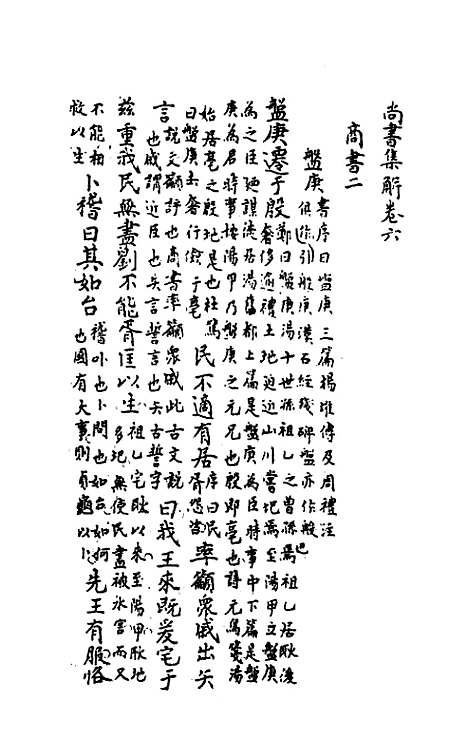 尚書集解卷六
商書二
盤庚書序曰盤庚三篇揚雄傳及周禮注引般庚漢石經殘碑盤亦作般
盤庚遷于殷鄭曰盤庚湯十世孫祖乙之曾孫祖乙居耿後奢侈逾禮土地迫近山川嘗圯焉至陽甲立盤庚
為之臣廼謀徙居湯舊都上篇是盤庚為臣時事中下篇是盤庚為君時事陽甲乃盤庚之元兄也殷即亳也詩元鳥箋湯
始居亳之殷地是也杜篤曰盤庚去奢行儉于亳民不適有居序曰民胥怨咨率籲衆戚出矢
言說文籲評也商書率籲衆戚此古文說也戚謂近臣也矢言誓言也矢古誓字曰我王來既爰宅于
茲重我民無盡劉不能胥匡以生祖乙宅耿以來至陽甲耿地多圮無使民盡被水害而又
不能相救以生卜稽曰其如台稽卟也卜問也如台如何也國有大則以卜先王有服恪